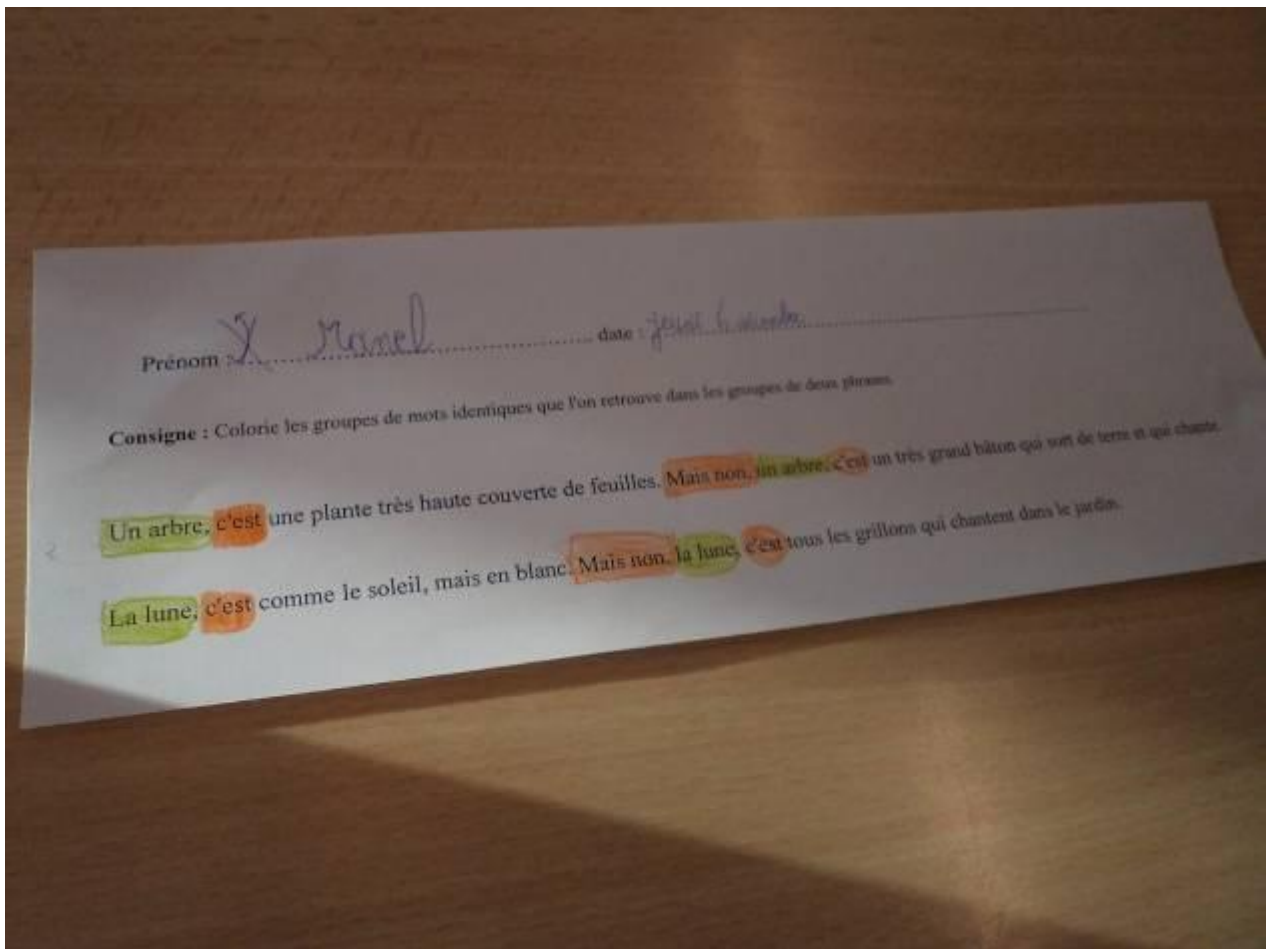 Prénom : X Manel date : jeudi 6
Consigne : Colorie les groupes de mots identiques que l'on retrouve dans les groupes de deux phrases.
Un arbre, c'est une plante très haute couverte de feuilles. Mais non, un arbre, c'est un très grand bâton qui sort de terre et qui chante.
La lune, c'est comme le soleil, mais en blanc. Mais non, la lune, c'est tous les grillons qui chantent dans le jardin.